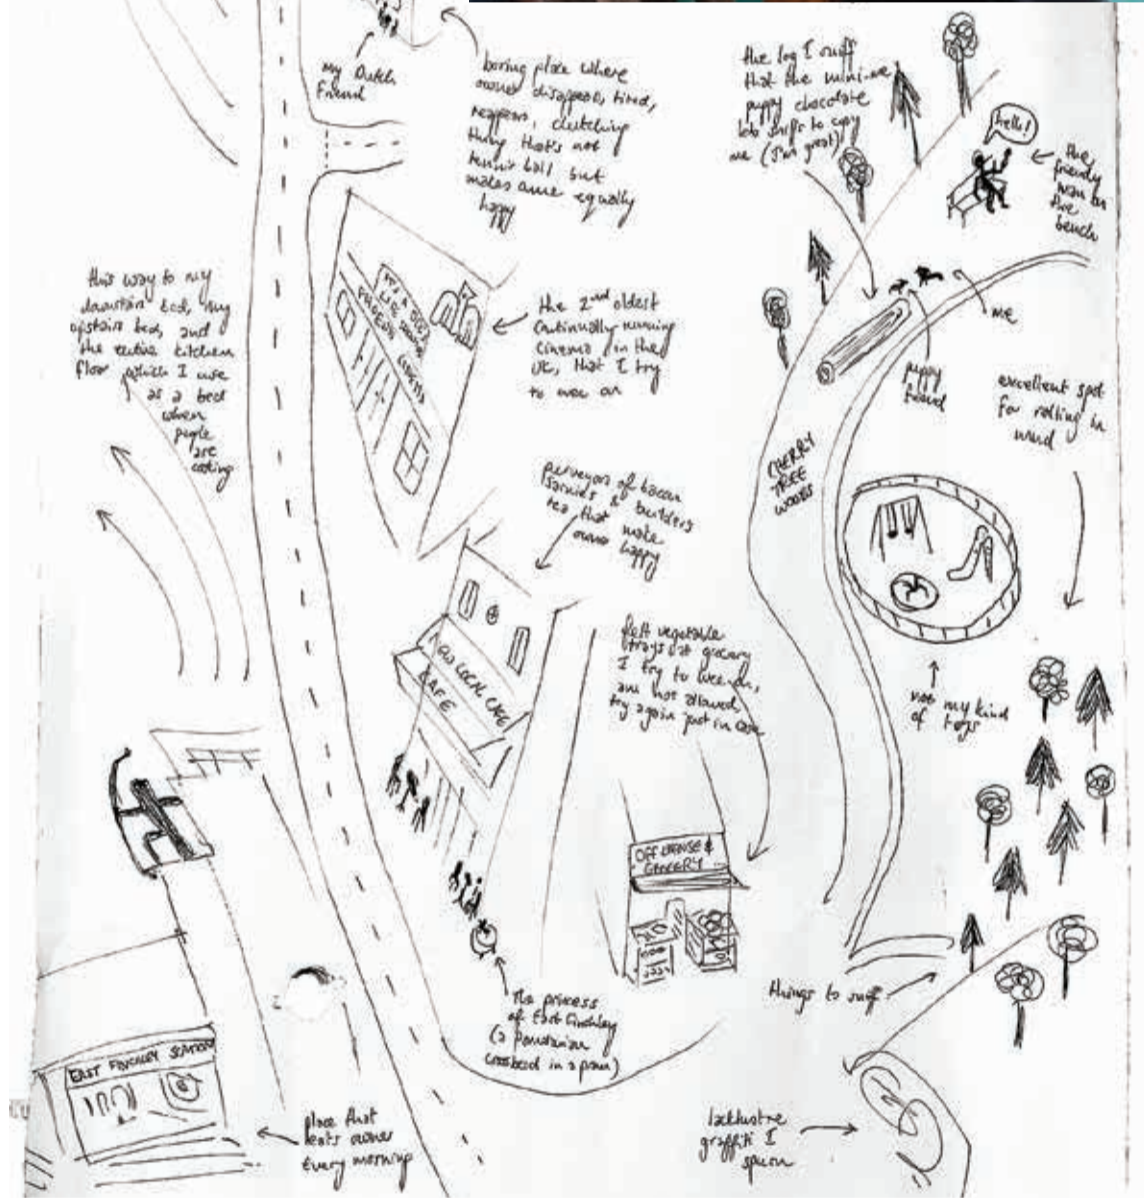 my Dutch
Friend
boring place where
owner disappears, tired,
reappears, clutching
thing that's not
tennis ball but
makes owner equally
happy
the log I sniff
that the mini-me
puppy chocolate
lab sniffs to copy
me (I'm great)
hello!
the
friendly
man on
the
bench
this way to my
downstairs bed, my
upstairs bed, and
the entire kitchen
floor which I use
as a bed
when
people
are
cooking
the 2nd oldest
continually running
cinema in the
UK, that I try
to wee on
me
puppy
friend
excellent spot
for rolling in
mud
CHERRY
TREE
WOODS
purveyors of bacon
sarnies & builders
tea that make
owner happy
LOCAL CAFE
CAFE
felt vegetable
trays at grocery
I try to wee on,
am not allowed,
try again just in case
not my kind
of toys
OFF LICENSE &
GROCERY
things to sniff
The princess
of East Finchley
(a Pomeranian
crossbreed in a pram)
EAST FINCHLEY STATION
place that
eats owner
every morning
lacklustre
graffiti I
spurn